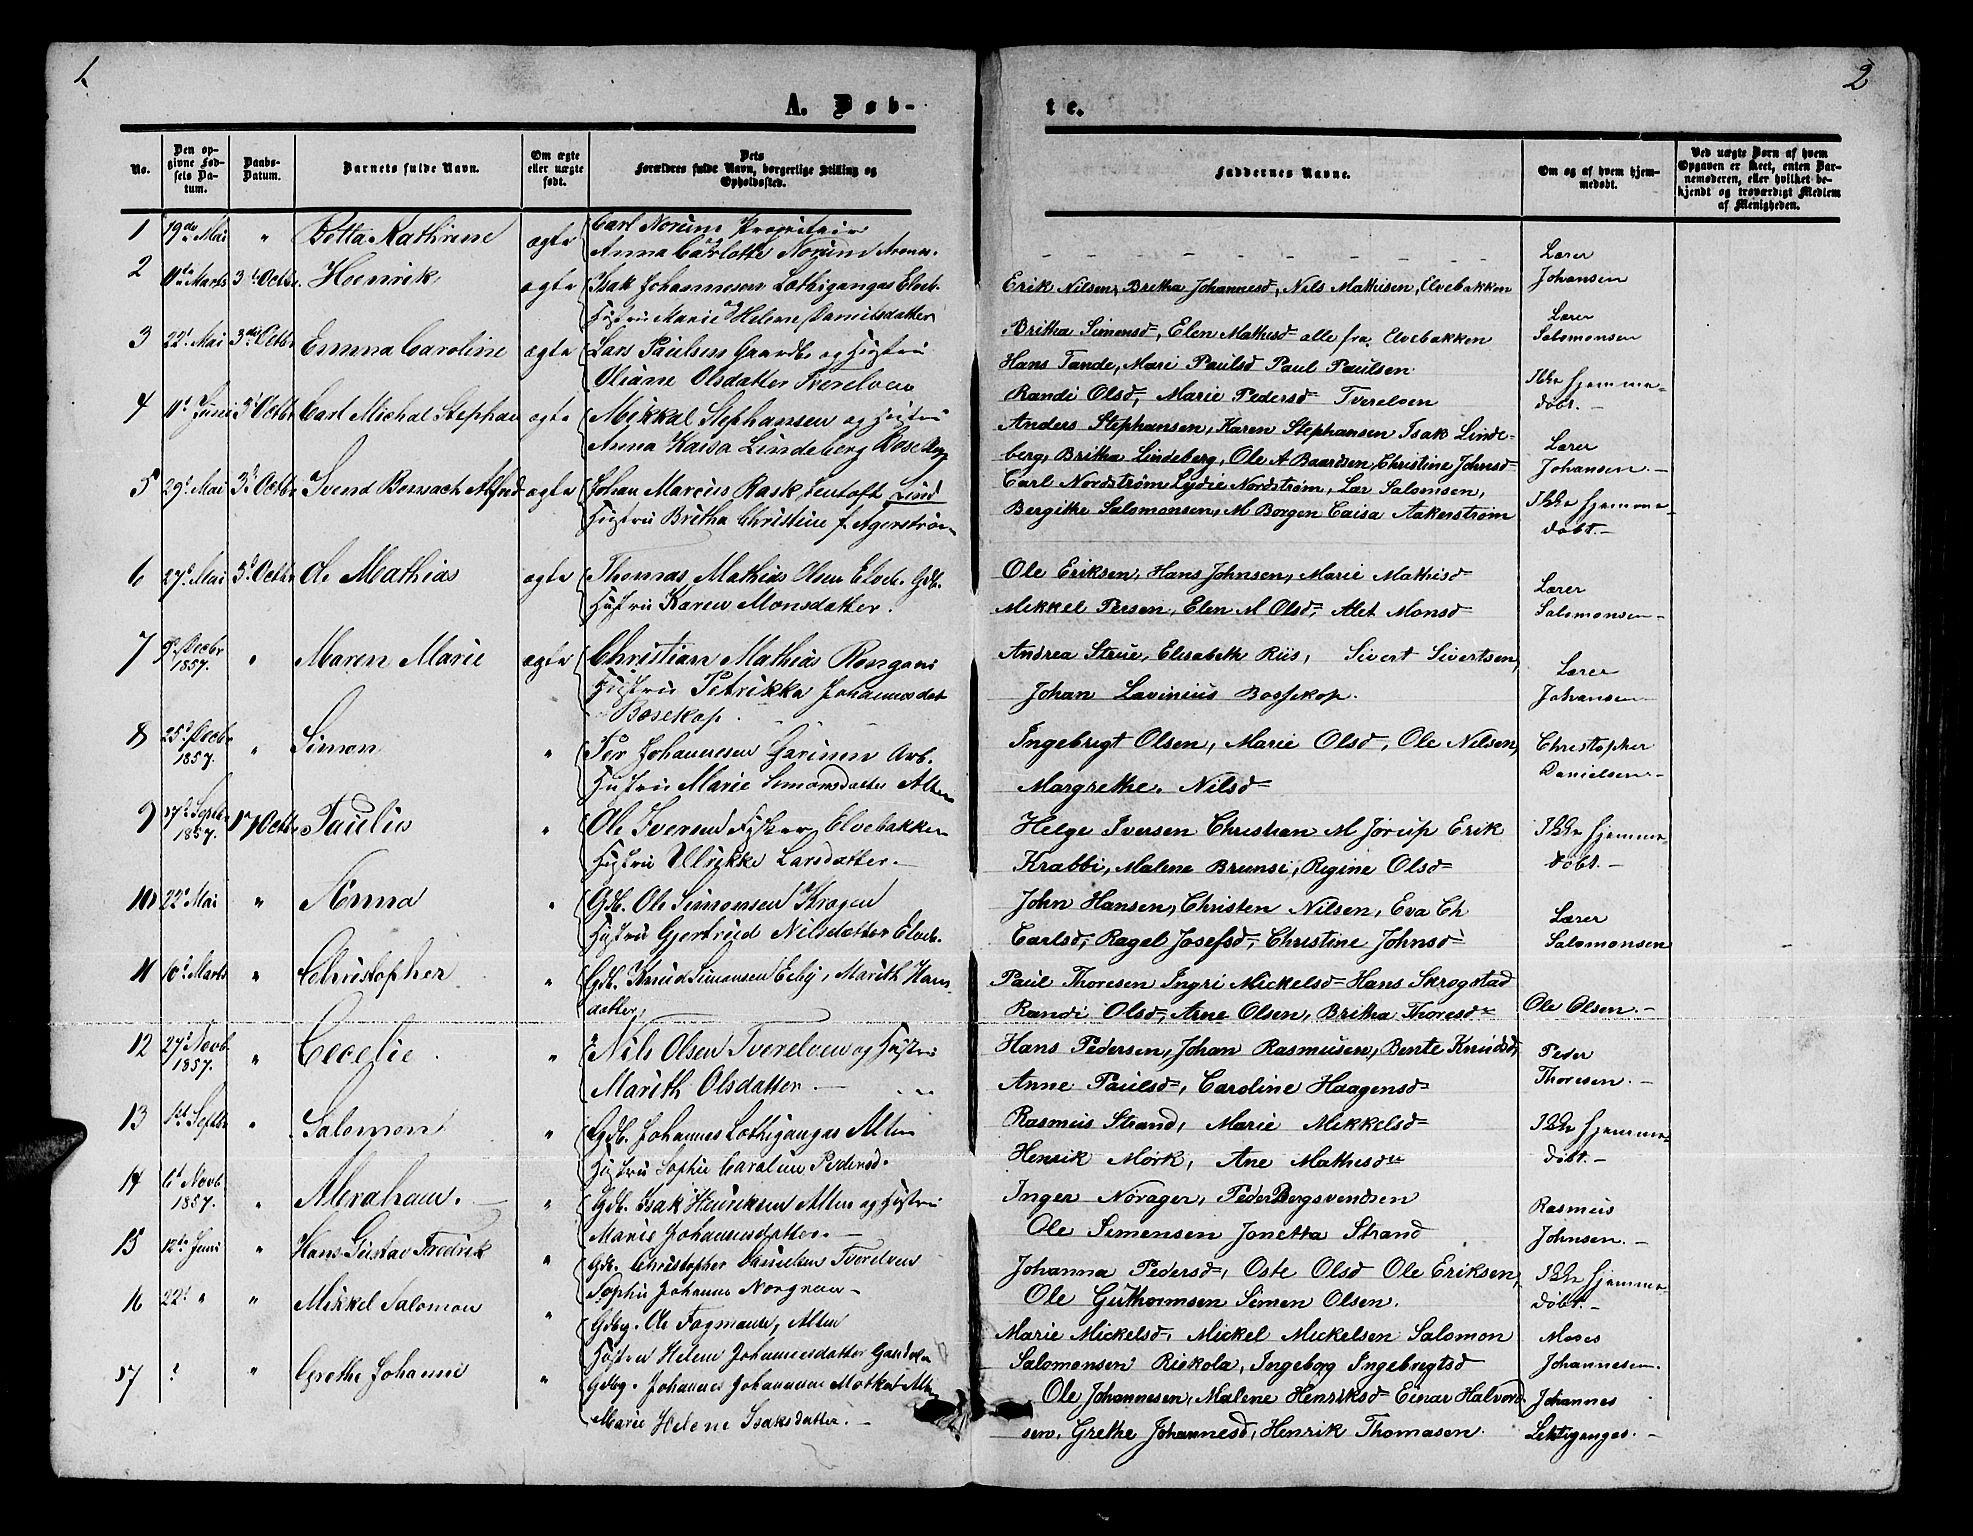 1.
2
A. Døb-
te.
No.
Den op-
givne Fød-
sels Da-
tum.
Daabs-
Datum.
Barnets fulde Navn.
Om ægte
eller uægte
født.
Dets
Forældres fulde Navn, borgerlige Stilling og
Opholdssted.
Faddernes Navne.
Om og af hvem hjem-
medøbt.
Ved uægte Børn af hvem
Opgaven er skeet, enten Bar-
nemoderen, eller hvilket be-
kjendt og troværdigt Medlem
af Menigheden.
1 19de Mai " Betta Kathrine ægte Carl Norum Proprietair
Anna Carlotte Norum
Lærer
Johansen
2 11te Marts 3d Octbr. Henrik ægte Isak Johannesen Lathigangas Elveb.
Hustru Marie Helene Danielsdatter
Erik Nilsen, Britha Johannesd, Nils Mathisen, Elvebakken
Britha Simonsd=, Elen Mathisd= alle fra Elvebakken
Lærer
Salomonsen
3 22d Mai 3die Octbr Emma Caroline ægte Lars Paulsen Gaardb. og Hustru
Oliane Olsdatter Tverelven
Hans Tande, Mari Paulsd Paul Paulsen
Randi Olsd=, Marie Pedersd= Tverelven
Ikke hjemme-
døbt.-
4 11t Juni 3d Octbr Carl Michal Stephan ægte Mikkal Stephansen og Hustru
Anna Kaisa Lindeberg
Anders Stephansen, Karen Stephansen Isak Linde-
berg, Britha Lindeberg, Ole A Baardsen, Christine Johnsd=
Lærer
Johansen.-
5 29d Mai 3d Octbr Svend Alfred ægte Johan Marcus Rask Lentoft Lind
Hustru Britha Christine f. Agerstrøm
Carl Nordstrøm Lydie Nordstrøm, Lær Salomsen,
Bergithe Salomonsen, M Borgen Caisa Aakerstrøm
Ikke hjemme-
døbt.-
6 27d Mai 3d Octbr Ole Mathias ægte Thomas Mathias Olsen Elveb. Gdb.
Hustru Karen Monsdatter.
Ole Eriksen, Hans Johnsen, Marie Mathisd=
Mikkel Persen, Elen M Olsd=, Alet Monsd=
Lærer
Salomonsen-
7 Decbr
1857. " Maren Marie ægte Christian Mathias
Hustru Petrikka Johannesdat
Bosekop.
Andrea Strue, Elisabeth Riis, Sivert Sivertsen,
Johan Lavinius Bossekop.
Lærer
Johansen
8 25d Decbr
1857. " Simon " Per Johannesen Garinen Arb.
Hustru Marie Simonsdatter Alten
Ingebrigt Olsen, Marie Olsd=, Ole Nilsen,
Margrethe. Nilsd=
Christopher
Danielsen-
9 17d Septbr
1857. Octbr Paulus " Ole Iversen Fisker Elvebakken
Hustru Ulrikke Larsdatter.-
Helge Iversen Christian M Jørup Erik
Krabbi, Malene Brunsi, Regine Olsd=
Ikke hjemme-
døbt.-
10 22d Mai " Anna " Gdb. Ole Simonsen Krogen
Hustru Gjertrud Nilsdatter Elveb.
John Hansen, Christen Nilsen, Eva Ch
Carlsd=, Ragel Josefsd=, Christine Johnsd=
Lærer
Salomonsen
11 10d Marts " Christopher " Gdb. Knud Simonsen Eiby, Marith Hans
datter,
Paul Thoresen Ingri Mickelsd= Hans Skrogstad
Randi Olsd=, Arne Olsen, Britha Thoresd=
Ole Olsen.-
12 27d Novb.
1857. " Cecelie. " Nils Olsen Tverelven og Hustru
Marith Olsdatter.-
Hans Pedersen, Johan Rasmusen, Bente Knudsd=,
Anne Paulsd=, Caroline Haagensd=
Peder
Thoresen.-
13 1st Septbr " Salomon " Gdb. Johannes Lathigangas Alten
Hustru Sophie Caroline Pedersd.
Rasmus Strand, Marie Mikkelsd=
Henrik Mørk, Ane Mathisd=
Ikke hjemme-
døbt.-
14 6t Novb
1857. " Abraham.- " Gdb. Isak Henriksen Alten og Hustru
Marie Johannesdatter.-
Inger Norager, Peder Bergsvendsen
Ole Simensen Jonetta Strand
Rasmus
Johnsen.-
15 12te Juni " Hans Gustav Fredrik " Gdb. Christopher Danielsen Tverelven
Sophie Johanne Norgren-
Johanna Pedersd=, Oste Olsd Ole Eriksen,
Ole Guthormsen Simen Olsen.
Ikke hjemme-
døbt.-
16 22d " " Mikkel Salomon " Gdbg. Ole Fogman, Alten
Hustru Helene Johannesdatter
Marie Mickelsd, Mickel Mickelsen Salomon
Salomonsen Riekola, Ingeborg Ingebrigtsd
Moses
Johannesen.
17 ? " Grethe Johanne " Gdbg. Johannes Johannesen Alten
Marie Helene Isaksdatter.-
Ole Johannesen, Malene Henriksd= Einar Halvord
sen, Grethe Johannesd, Henrik Thomasen.
Johannes